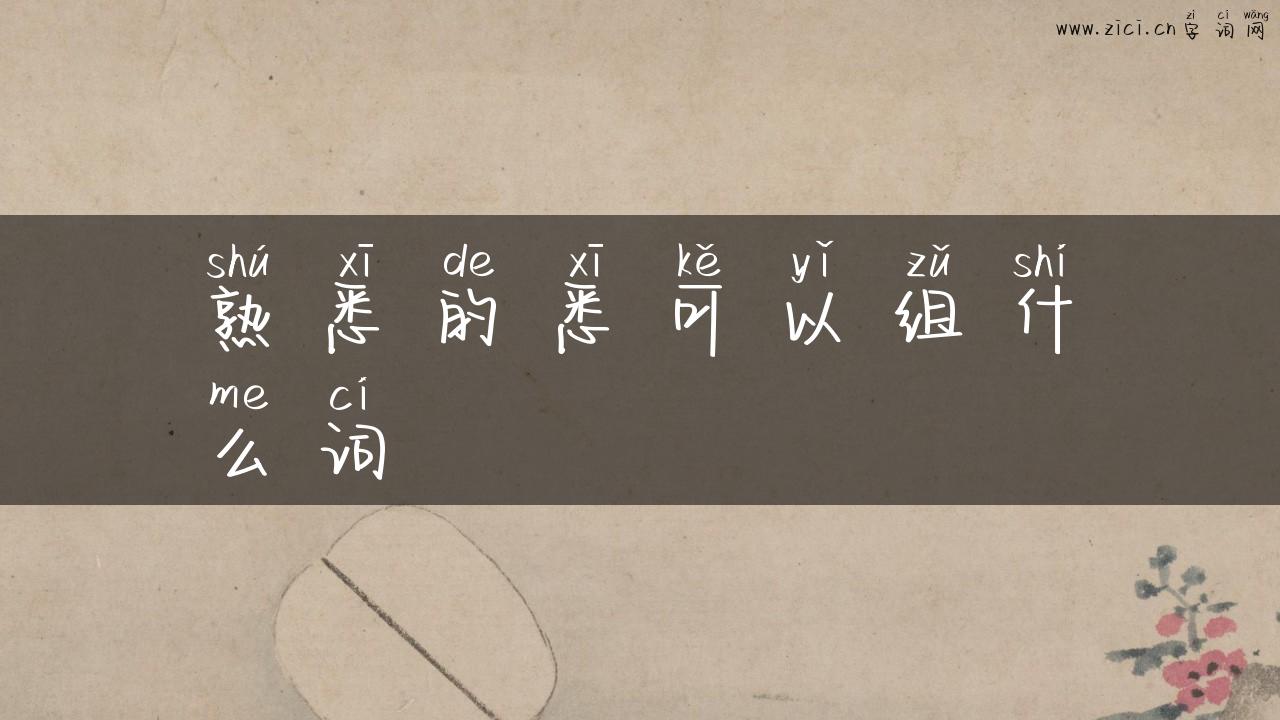 zì cí wǎng
www.zici.cn字词网
shú xī de xī kě yǐ zǔ shí
熟悉的悉可以组什
me cí
么词